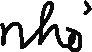 nhỏ